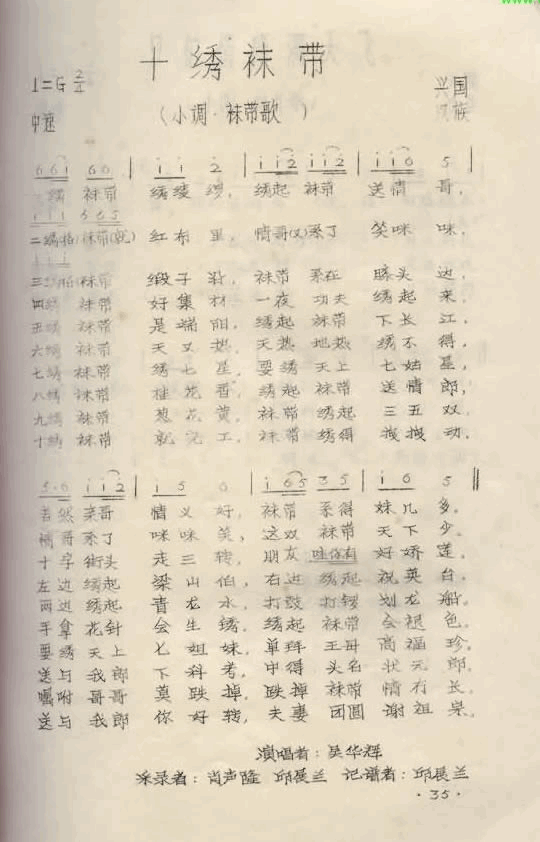 十绣袜带
1=G 2/4
兴国
(小调·袜带歌)
中速
汉族
6 6 1 6 0 i i 2 i i 2 i i 2 i i 6 5
绣 袜带 绣绫 缎, 绣起 袜带 送情 哥,
i i i 6 6 5
二绣 袜带 红布 里, 情哥(又)系了 笑咪 咪,
i i i
三绣 袜带 缎子 袜带 系在 膝头 边,
四绣 袜带 好集 材 一夜 功夫 绣起 来,
五绣 袜带 是端 阳, 绣起 袜带 下长 江,
六绣 袜带 天又热 天热 地热 绣不 得,
七绣 袜带 绣七 星, 要绣 天上 七姑 星,
八绣 袜带 桂花 香, 绣起 袜带 送情 郎,
九绣 袜带 葱花 黄, 袜带 绣起 三五 双,
十绣 袜带 就完 工, 袜带 绣得 动,
i i 2 i 5 6 i 6 5 3 5 i 6 5
亲哥 情义 好, 袜带 系得 妹儿 多。
哥系了 咪咪 笑, 这双 袜带 天下 少。
十字 街头 走三 转, 朋友 你有 好娇 莲。
左边 绣起 梁山 伯, 右边 绣起 祝英 台。
两边 绣起 青龙 水, 打鼓 打锣 划龙 船。
手拿 花针 会生 锈, 绣起 袜带 会褪 色。
要绣 天上 七姐 妹, 王母 高福 珍。
送与 我郎 下科 考, 中得 头名 状元 郎。
嘱咐 哥哥 莫跌 掉, 跌掉 袜带 情冇 长。
送与 我郎 你好 转, 夫妻 团圆 谢祖 宗。
演唱者:吴华辉
采录者:肖声隆 邱展兰 记谱者:邱展兰
·35·